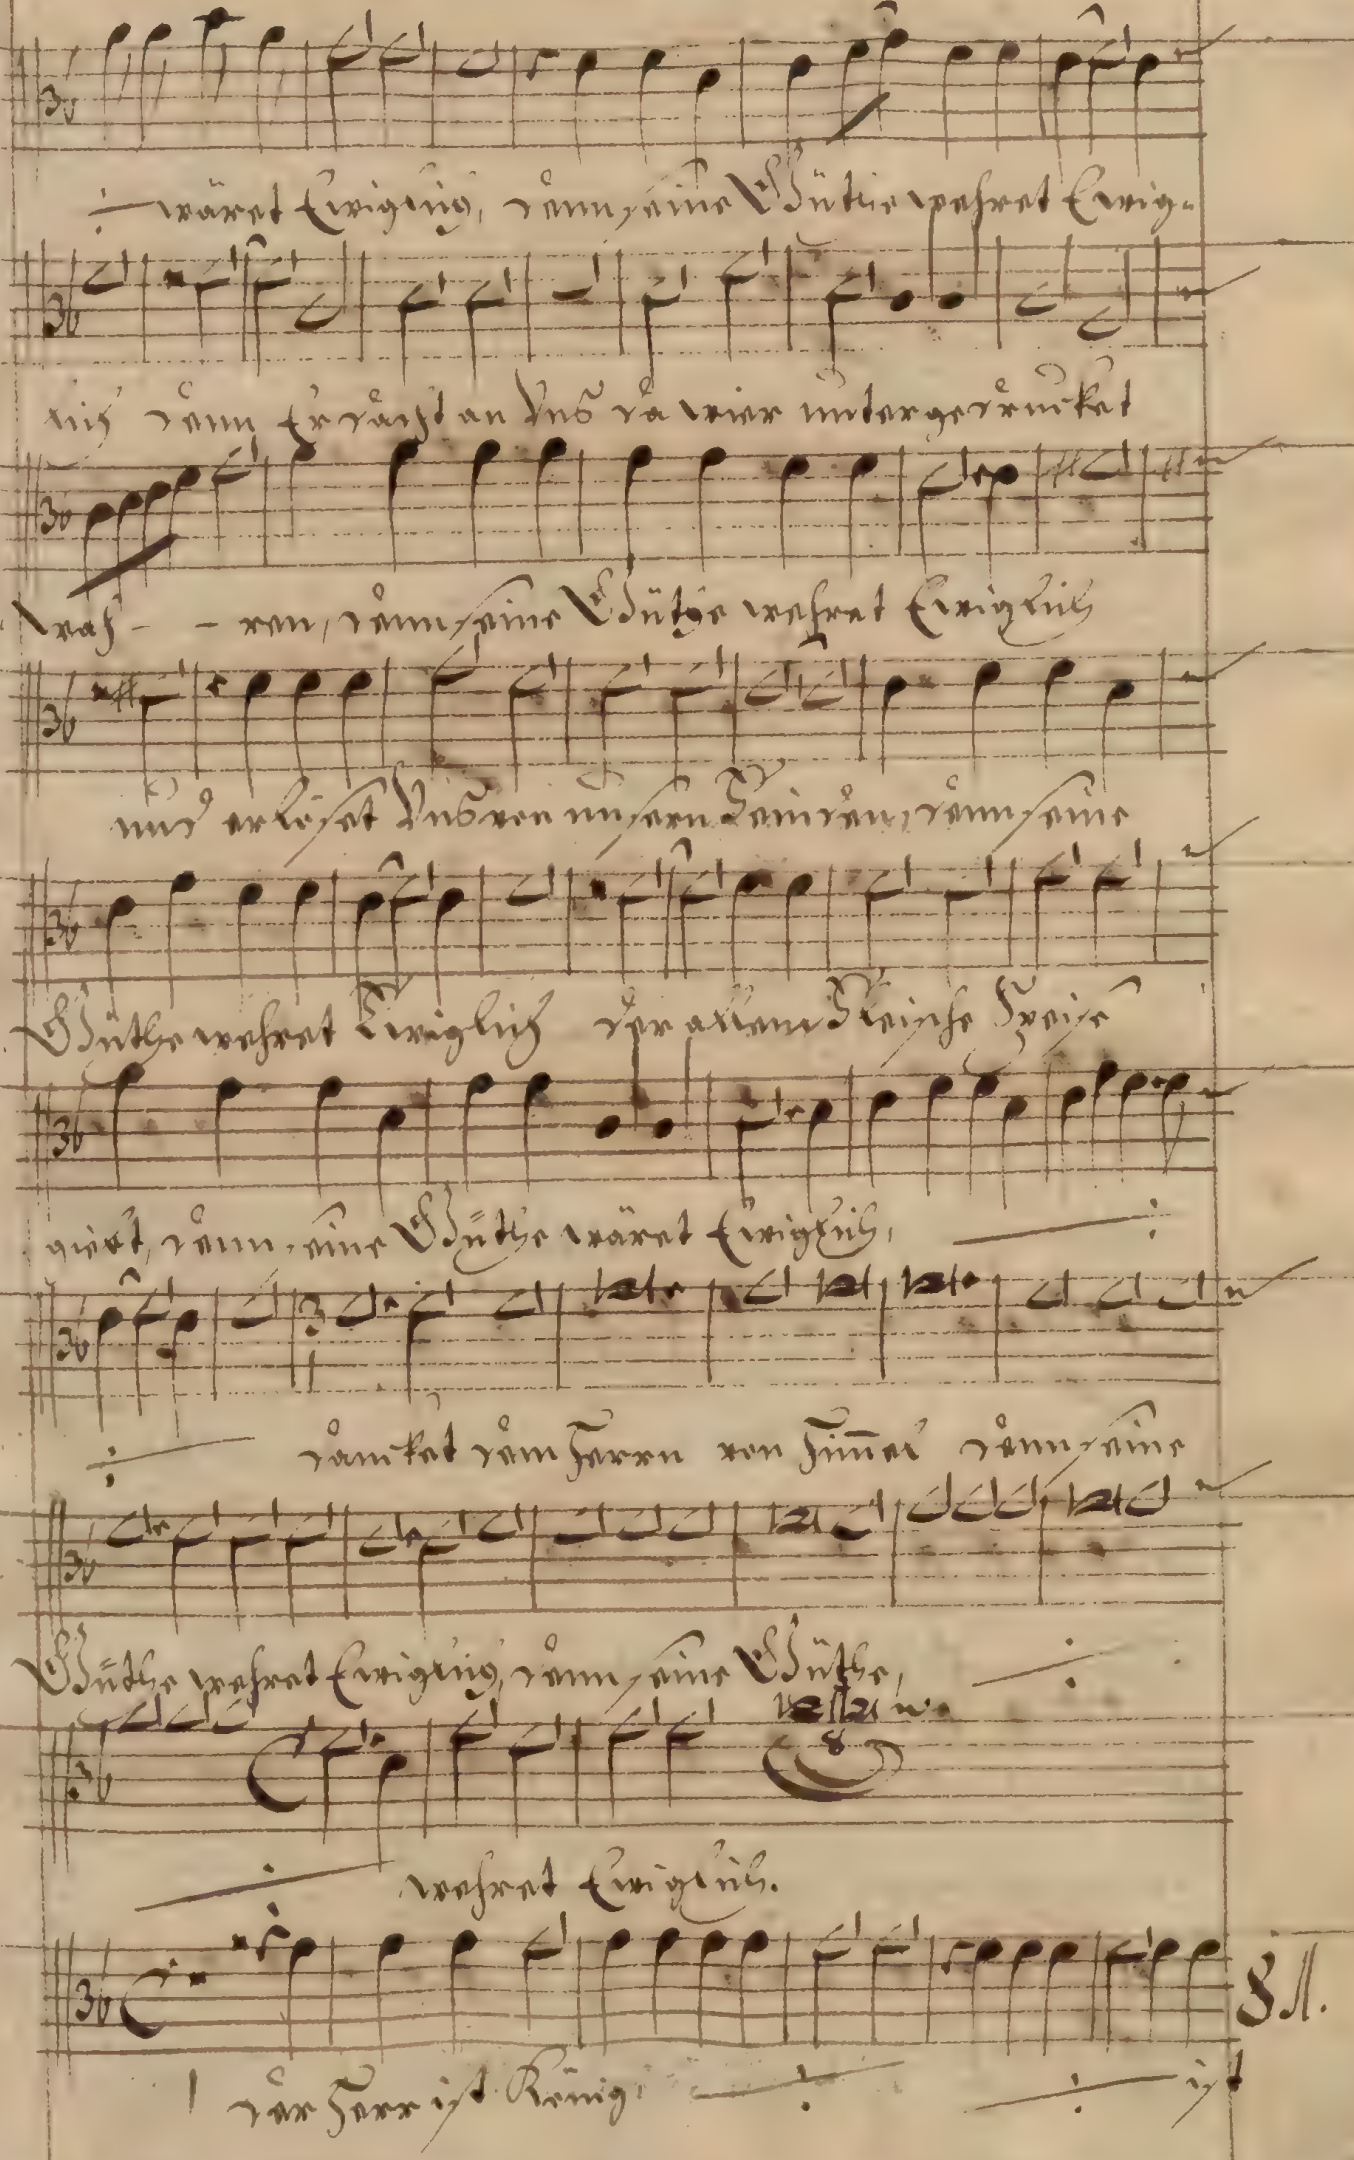 wäret Ewiglich, denn seine Güthe wehret Ewig=
lich denn Er dacht an Uns da wier untergedrucket
wah - - ren, denn seine Güthe wehret Ewiglich
und erlöset Uns von unsern Feinden, denn seine
Güthe wehret Ewiglich der allem Fleische Speise
giebt, denn seine Güthe wäret Ewiglich,
dancket dem Herrn von Himmel denn seine
Güthe wehret Ewiglich, denn seine Güthe,
wehret Ewiglich.
8
der Herr ist König ist